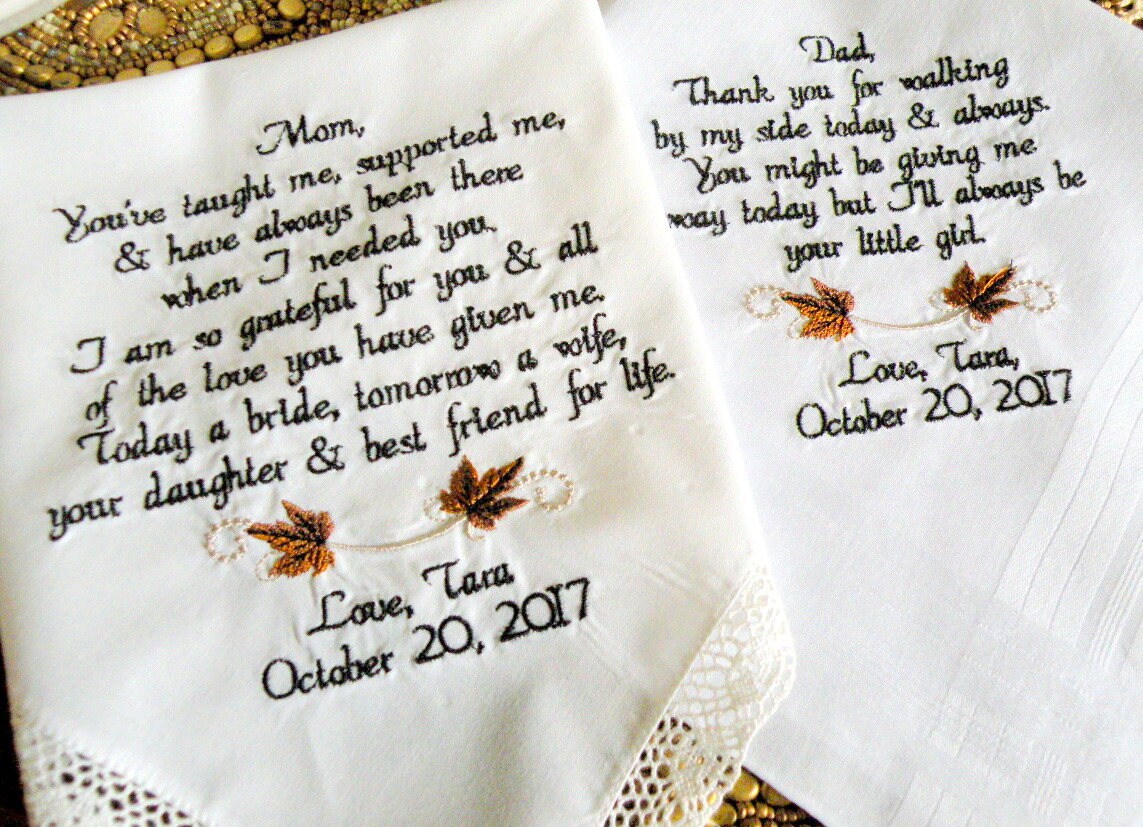 Mom,
You've taught me, supported me,
& have always been there
when I needed you.
I am so grateful for you & all
of the love you have given me.
Today a bride, tomorrow a wife,
your daughter & best friend for life.
Love, Tara
October 20, 2017
Dad,
Thank you for walking
by my side today & always.
You might be giving me
way today but I'll always be
your little girl.
Love, Tara,
October 20, 2017